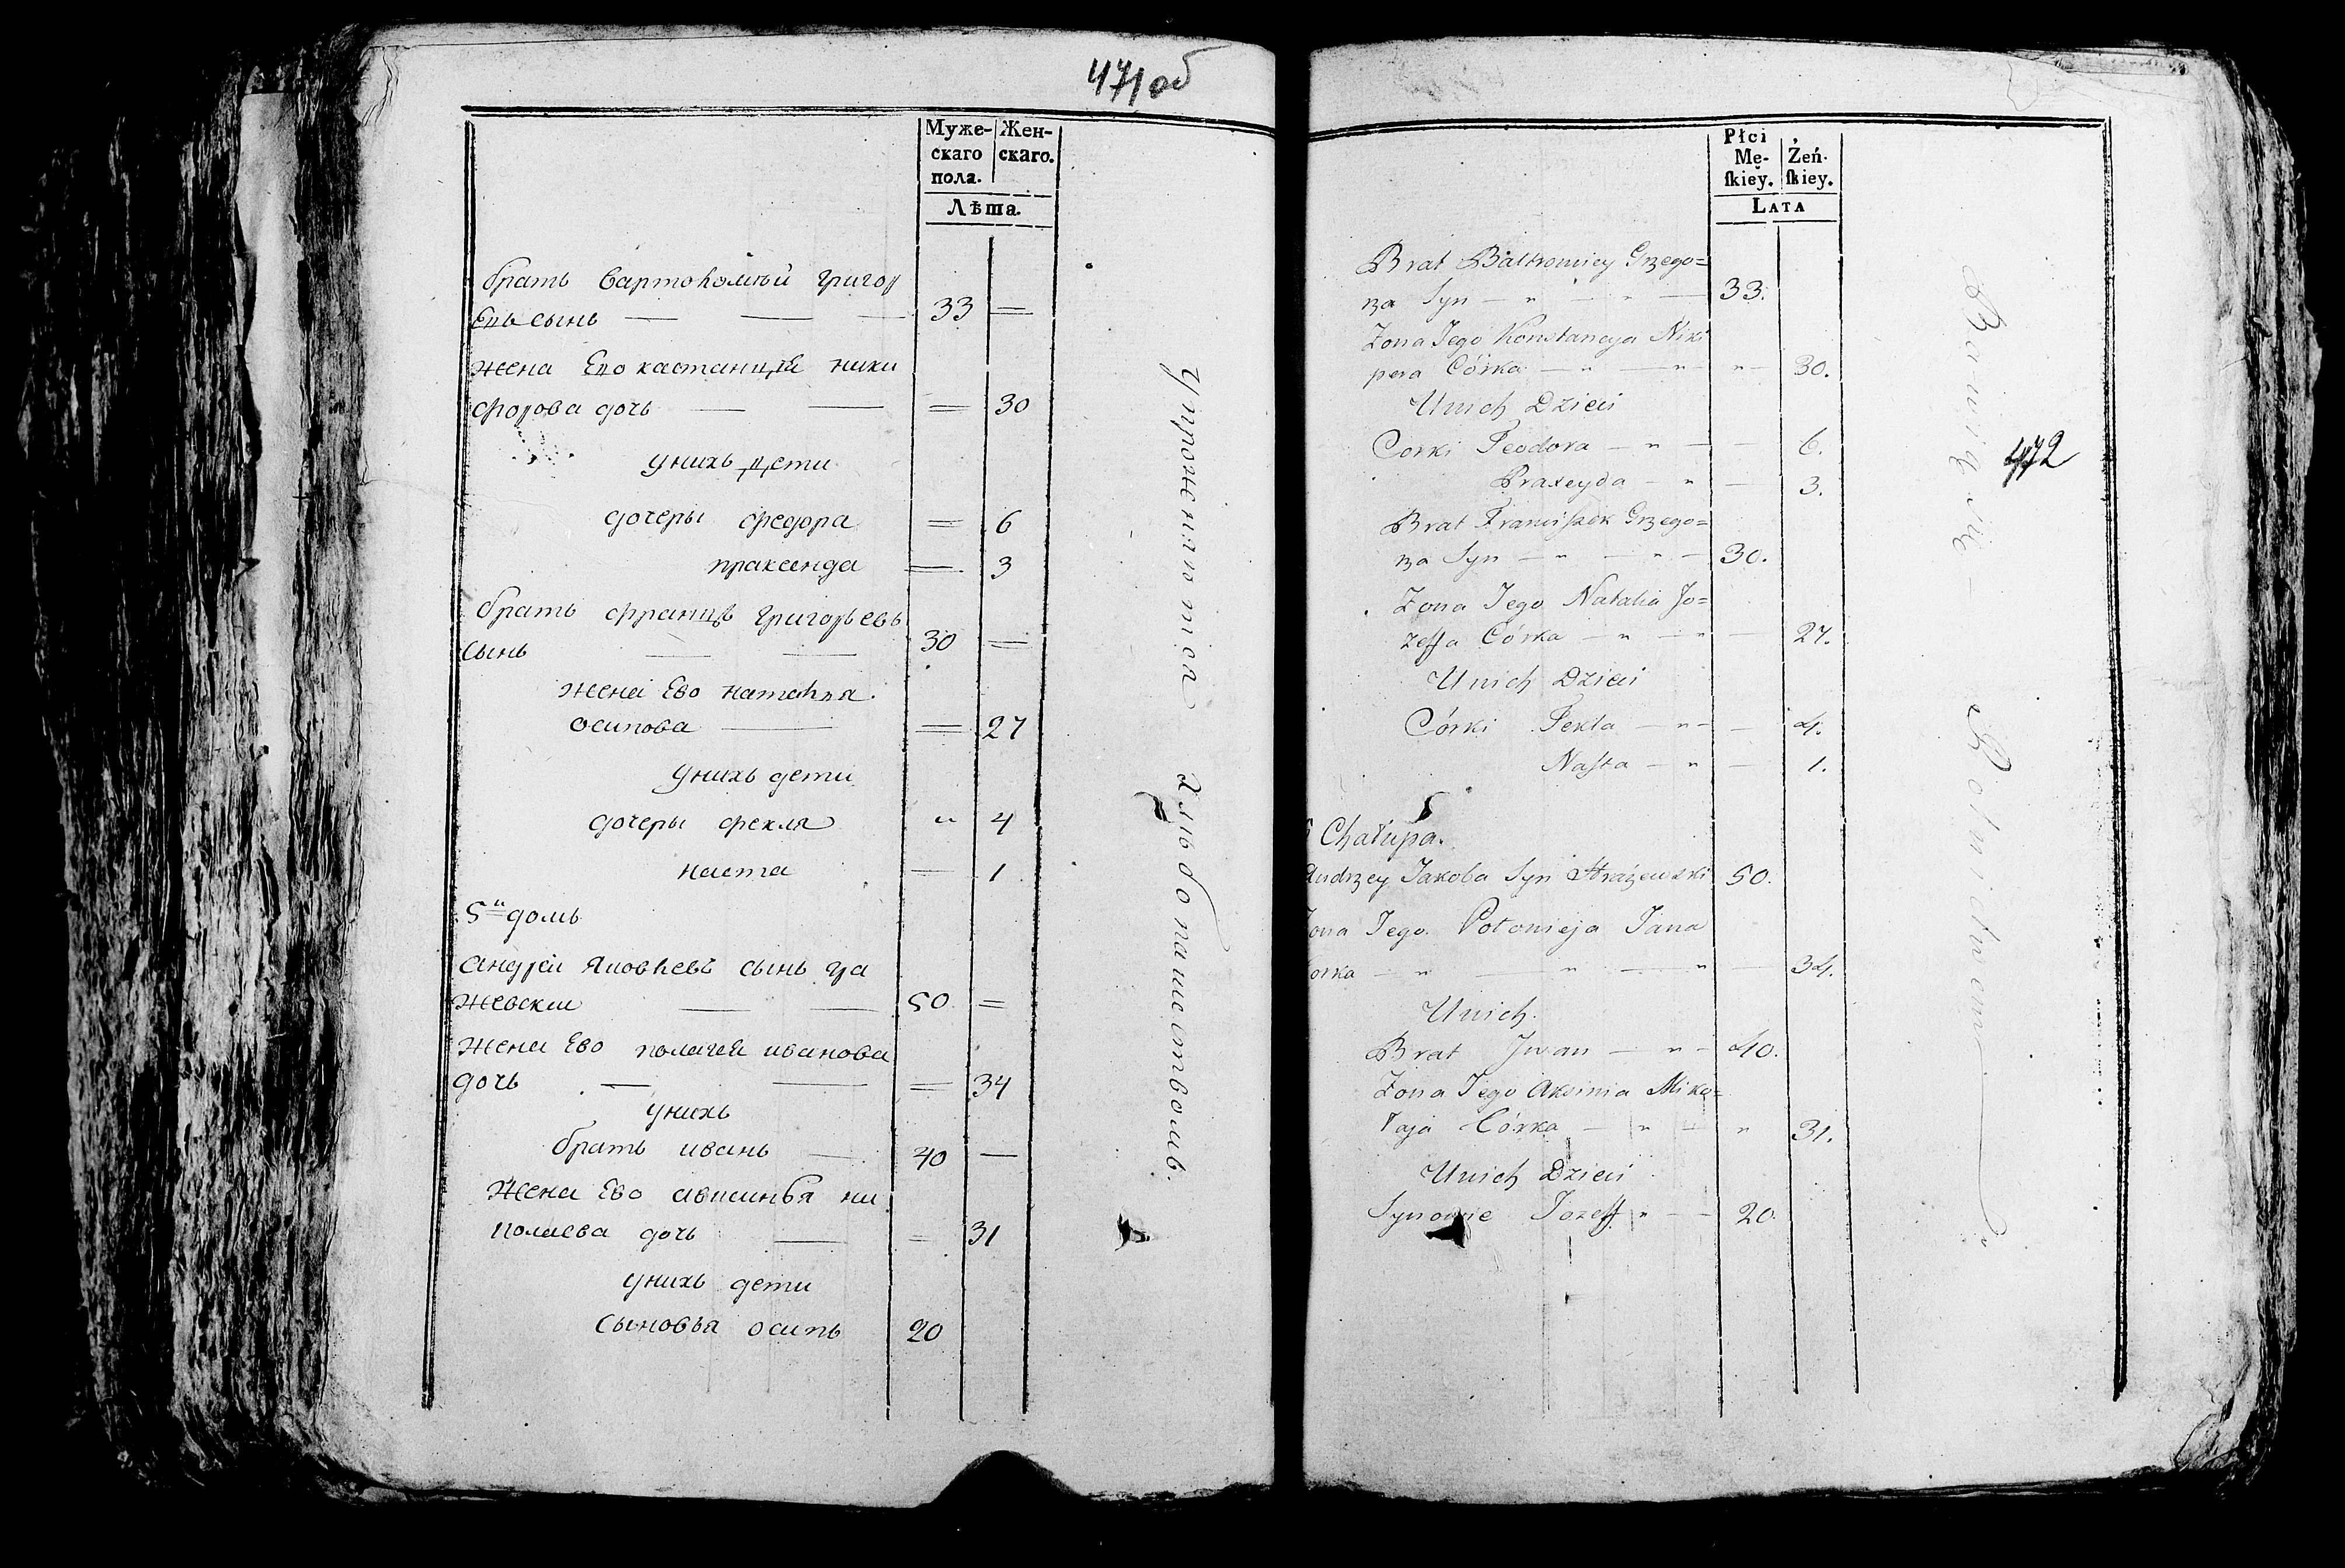 471 об
Муже- Жен-
скаго скаго.
пола.
Лѣта.
братъ бартоломѣй григор
евъ сынъ — — — 33 =
жена Ево кастанцѣя ники
форова дочь — — = 30
унихъ дети
дочеры федора = 6
праксеида = 3
братъ францъ григорьевъ
сынъ — — 30 =
жена Ево наталя
осипова — = 27
унихъ дети
дочеры фекла " 4
наста — 1
5й домъ
андрей яковлевъ сынъ
жевски — — 50 =
жена Ево полагея иванова
дочь — — = 34
унихъ
братъ иванъ — 40 —
жена Ево авксинья ни
колаева дочь — = 31
унихъ дети
сыновья осипъ 20
упрожняются хлѣбопашествомъ.
Płci
Mę- Żeń-
ſkiey. ſkiey.
Lata
Brat Bałtromiey Grzego=
rza Syn — " — " — 33.
Żona Jego Konstancya Niki
pera Córka — " — " " 30.
Unich Dzieci
Corki Teodora — " — — 6.
Praxeyda — " — 3.
Brat Franciſzek Grzego=
rza Syn — " — " — 30.
Żona Jego Natalia Jo=
zeffa Córka — " — " — 27.
Unich Dzieci
Córki Tekla — " — — 4.
Naſta — " — 1.
Chałupa.
Andrzey Jakoba Syn Strażewski 50.
Żona Jego Połonieja Jana
Corka — " — " — " — 34.
Unich.
Brat Jwan — " — 40.
Żona Jego Aksinia Miko=
łaja Córka — " — " 31.
Unich Dzieci
Synowie Jozeff " — — 20.
472
Bawią się Rolnictwem